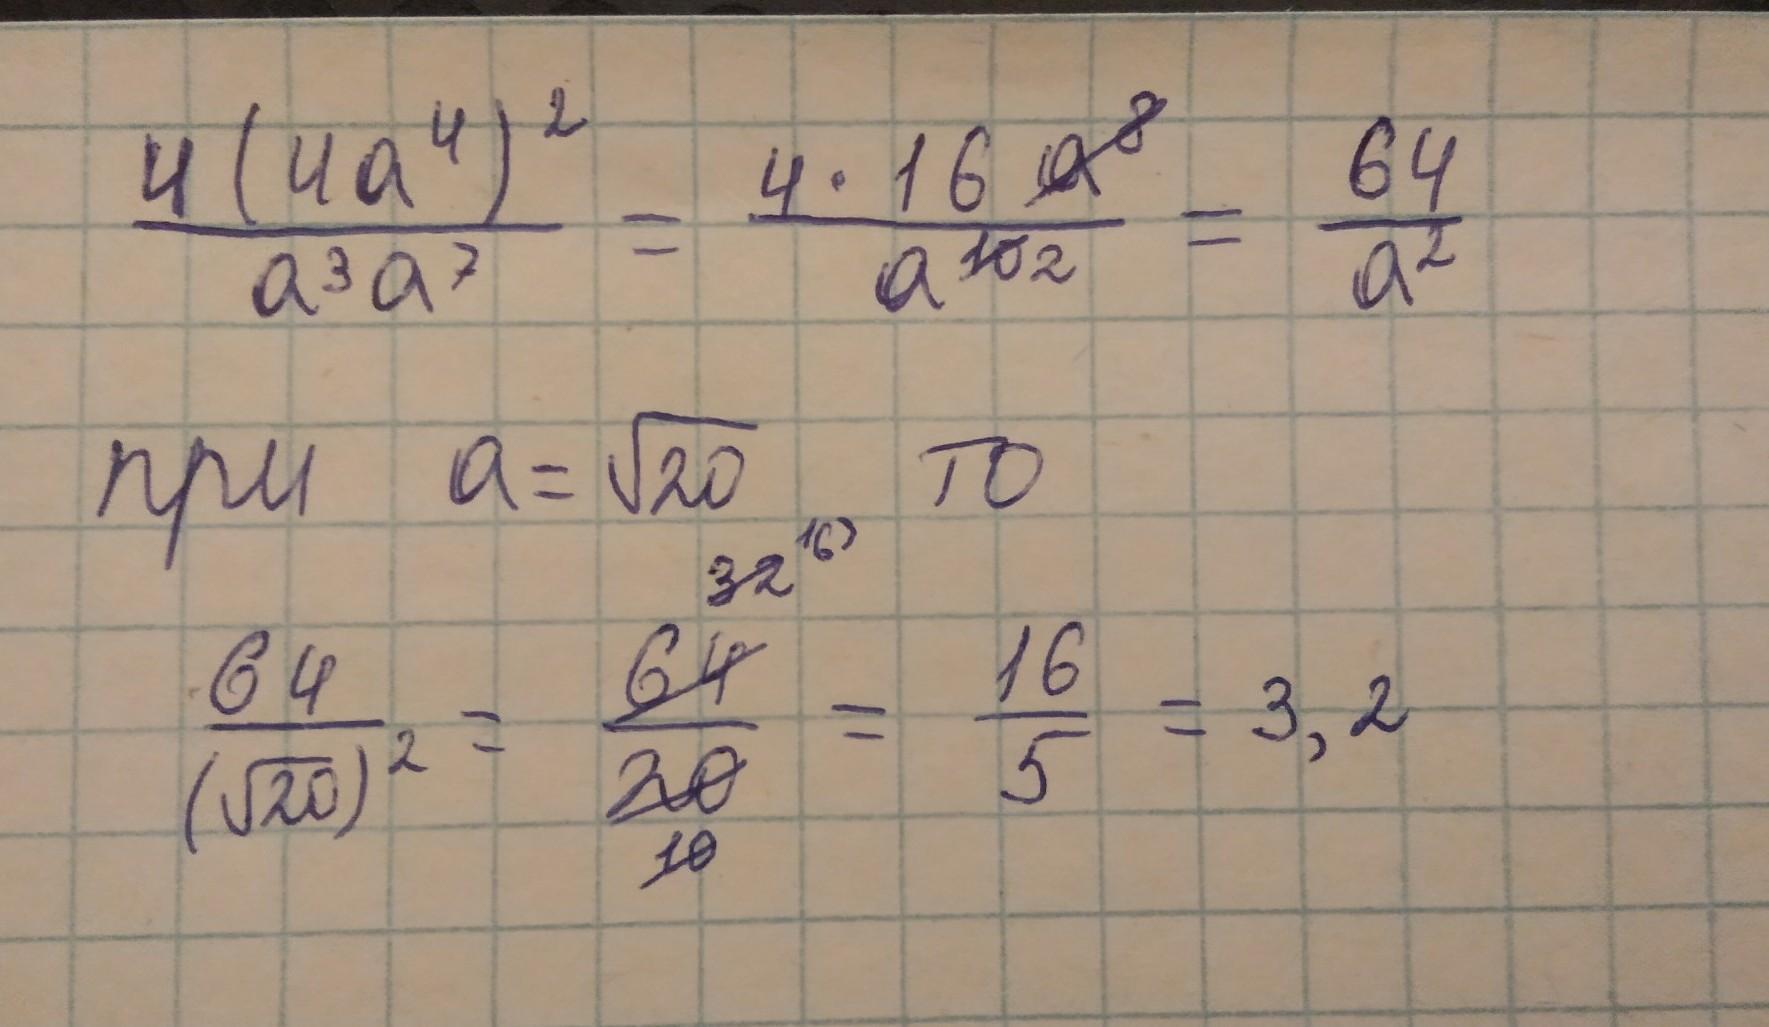 4(4a⁴)²/a³a⁷ = 4·16a⁸/a¹⁰ ² = 64/a²
при a=√20 то
32 16)
64/(√20)² = 64/20 = 16/5 = 3,2
10